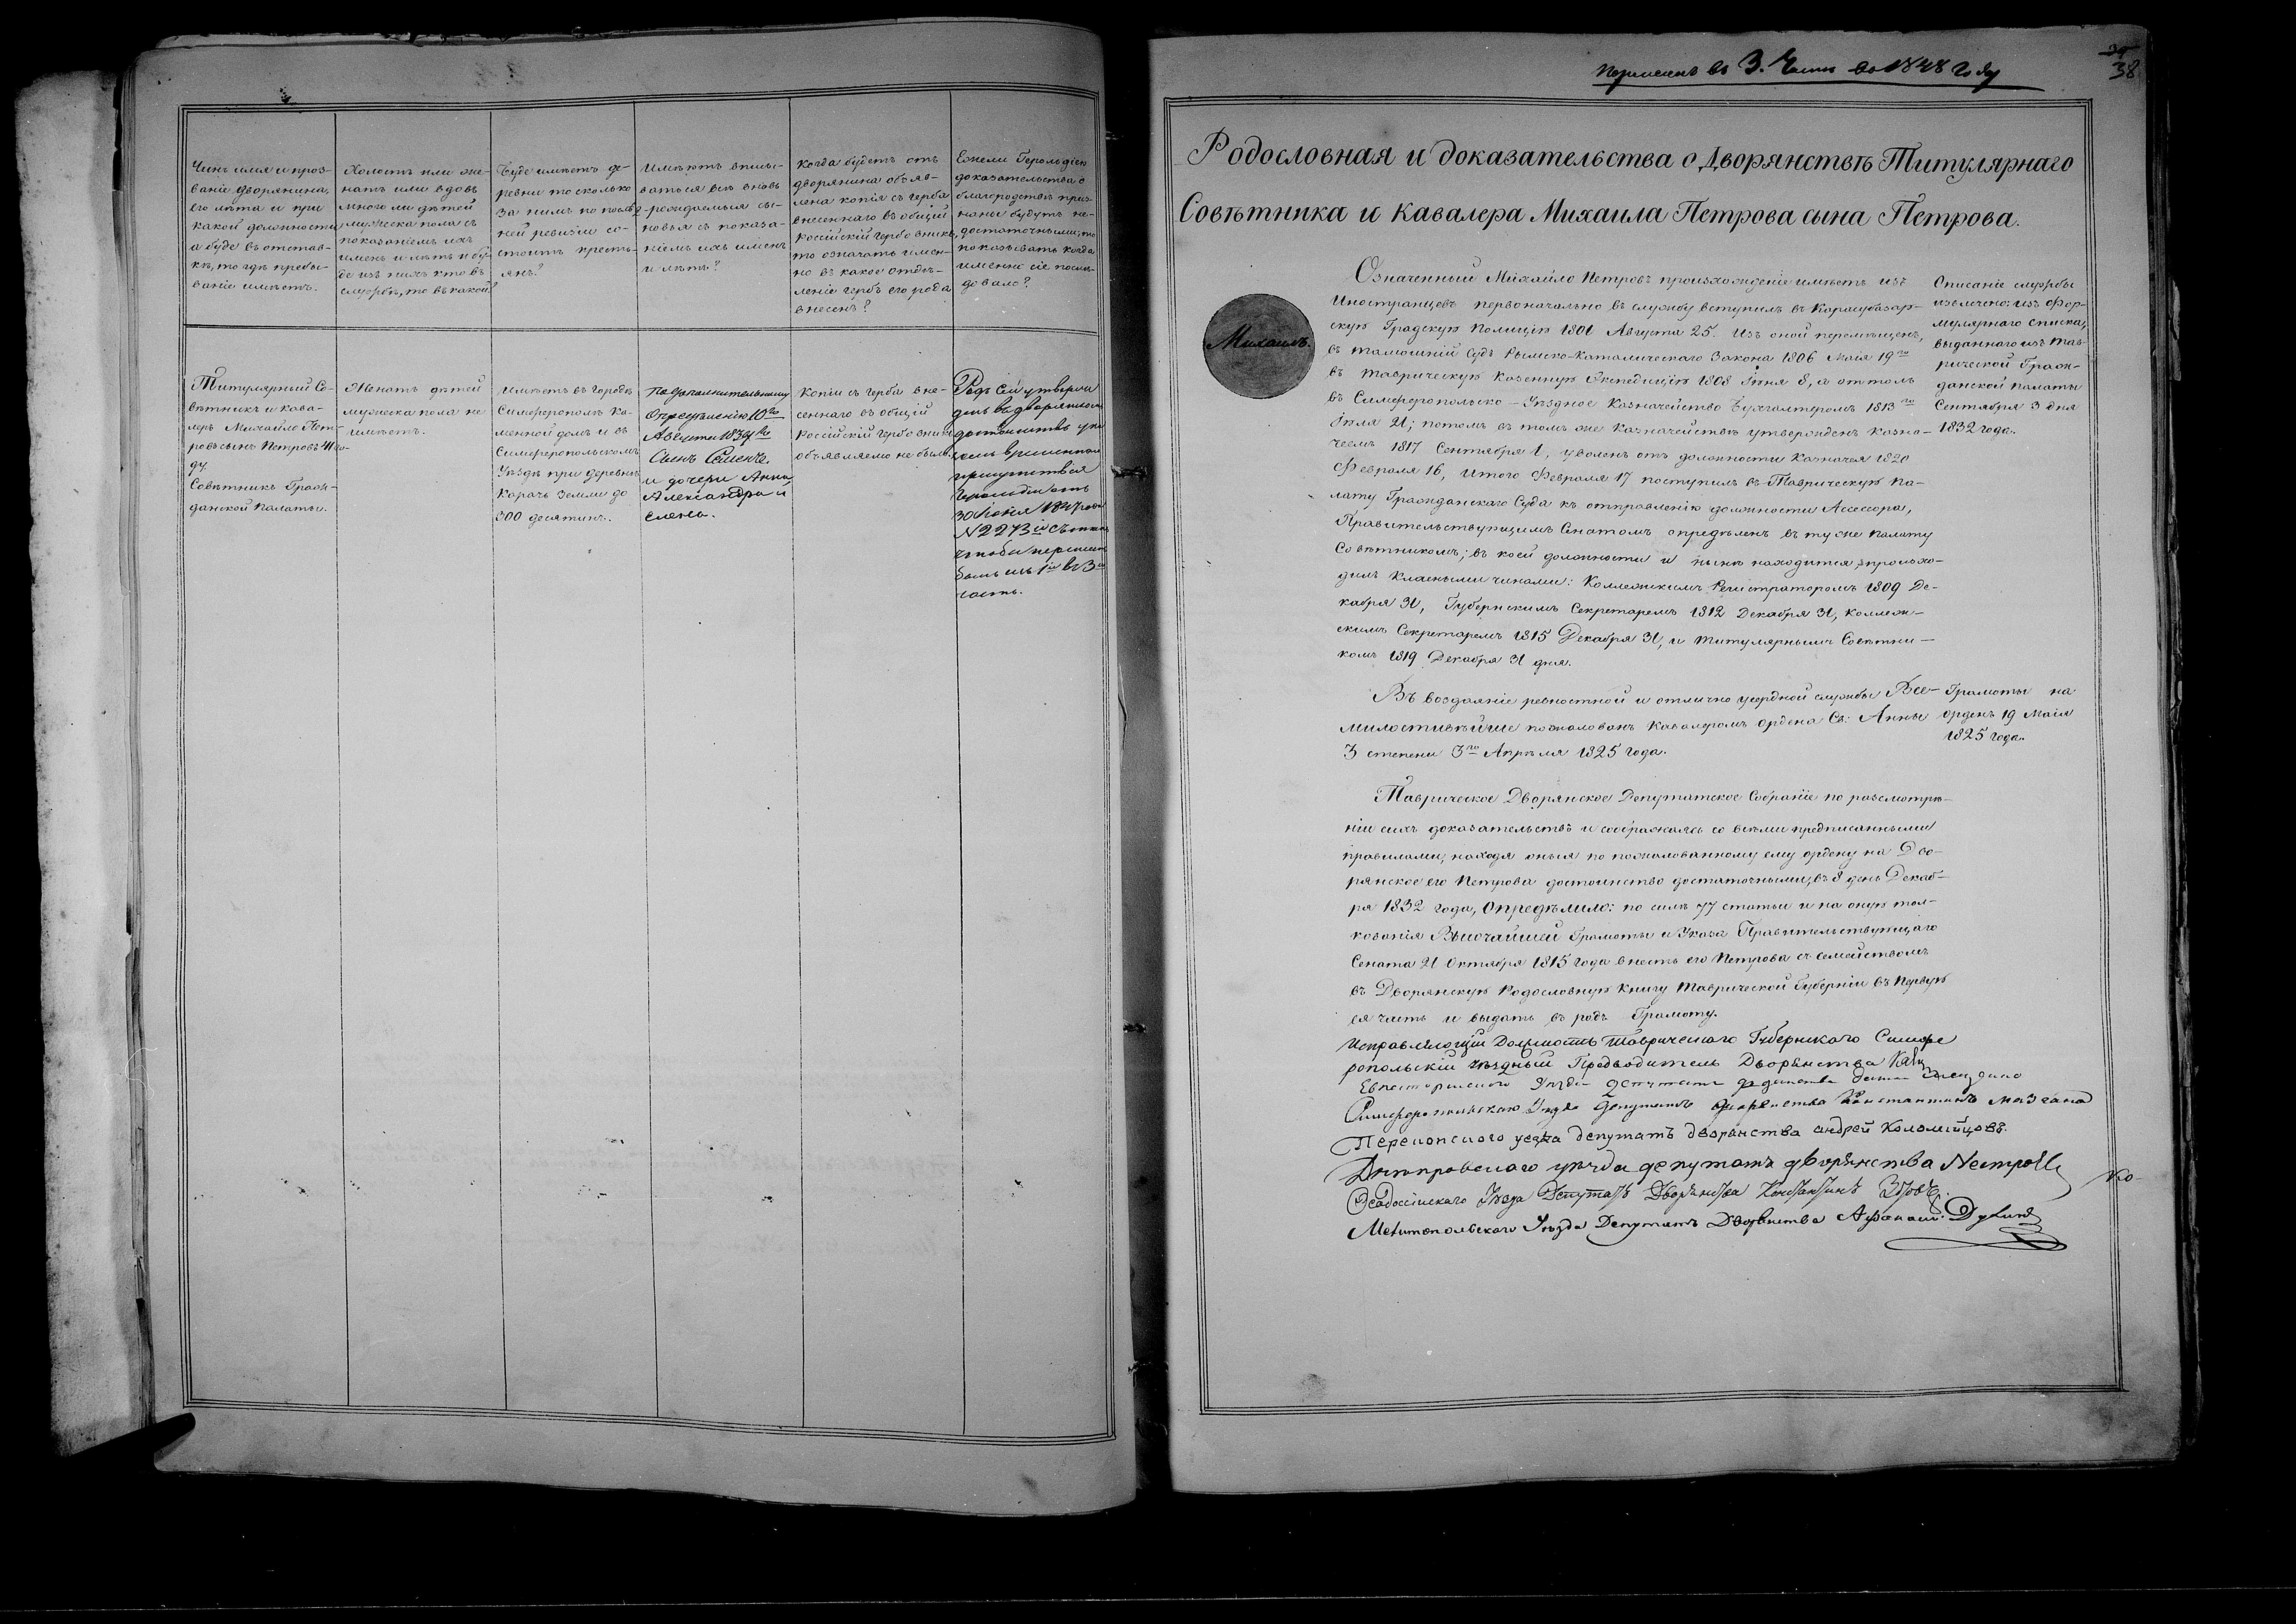 Чинъ имя и проз-
ваніе дворянина,
его лѣта и при
какой должности,
а буде въ отстав-
кѣ, то гдѣ пребы-
ваніе имѣетъ.
Холостъ или же-
натъ или вдовъ
много ли дѣтей
мужеска пола съ
показаніемъ ихъ
именъ и лѣтъ и бу-
де изъ нихъ кто въ
службѣ, то въ какой?
Буде имѣетъ де-
ревни то сколько
за нимъ по послѣд-
ней ревизіи со-
стоитъ кресть-
янъ?
Имѣютъ впис-
ваться всѣ вновь
рождаемыя сы-
новья съ показа-
ніемъ ихъ именъ
и лѣтъ?
Когда будетъ отъ
дворянина объяв-
лена копія съ герба
внесеннаго въ общій
Россійскій гербовникъ,
то означать имен-
но въ какое отдѣ-
леніе гербъ его рода
внесенъ?
Ежели Герольдіею
доказательства о
благородствѣ приз-
наны будутъ не-
достаточными, то
показывать когда
именно сіе послѣ-
довало?
Титулярный Со-
вѣтникъ и Кава-
леръ Михайло Пет-
ровъ сынъ Петровъ 41 го-
ду.
Совѣтникъ Граж-
данской Палаты.
Женатъ дѣтей
мужеска пола не
имѣетъ.
Имѣетъ въ городѣ
Симферополѣ ка-
менной домъ и въ
Симферопольскомъ
Уѣздѣ при деревнѣ
Карачь земли до
300 десятинъ.
По дополнительному
Опредѣленію 10го
Августа 1834 го
Сынъ Семенъ.
и дочери Анна,
Александра и
Елена.
Копіи съ герба вне-
сеннаго въ общій
Россійскій гербовникъ
объявляемо не было.
Родъ сей утверж
денъ въ дворянском
достоинствѣ
присутствія
Герольдіи отъ
N 2273
чтобы перенесенъ
былъ изъ 1й въ 3ю
часть.
Перенесенъ въ 3. Часть въ 1848 году
38
Родословная и доказательства о Дворянствѣ Титулярнаго
Совѣтника и Кавалера Михаила Петрова сына Петрова.
Михаилъ.
Означенный Михайло Петровъ происхожденіе имѣетъ изъ
Иностранцевъ первоначально въ службу вступилъ въ Карасубазар-
скую Градскую Полицію 1801 Августа 25. Изъ оной перемѣщенъ,
въ тамошній Судъ Рымско-Католическаго Закона 1806 Маія 19го
въ Таврическую Казенную Экспедицію 1808 Іюня 8, а оттоль
въ Симферопольско-Уѣздное Казначейство Бухгалтеромъ 1813го
Іюля 21; потомъ въ томъ же Казначействѣ утвержденъ Казна-
чеемъ 1817 Сентября 1, уволенъ отъ должности Казначея 1820
Февраля 16, итого Февраля 17 поступилъ въ Таврическую Па-
лату Гражданскаго Суда къ отправленію должности Асессора,
Правительствующимъ Сенатомъ опредѣленъ въ туже Палату
Совѣтникомъ; въ коей должности и нынѣ находится, происхо-
дилъ класными чинами: Коллежскимъ Регистраторомъ 1809 Де-
кабря 31, Губернскимъ Секретаремъ 1812 Декабря 31, Коллеж-
скимъ Секретаремъ 1815 Декабря 31, и Титулярнымъ Совѣтни-
комъ 1819 Декабря 31 дня.
Описаніе службы
извлечено: изъ фор-
мулярнаго списка,
выданнаго изъ Тав-
рической Граж-
данской Палаты
Сентября 3 дня
1832 года.
Въ воздаяніе ревностной и отлично усердной службы Все-
милостивѣйше пожалованъ Кавалеромъ ордена Св: Анны
3 степени 3го Апрѣля 1825 года.
Грамоты на
орденъ 19 Маія
1825 года.
Таврическое Дворянское Депутатское Собраніе по разсмотрѣ-
ніи сихъ доказательствъ и соображаясь со всѣми предписанными
правилами, находя оныя по пожалованному ему ордену на Дво-
рянское его Петрова достоинство достаточными, въ 8 день Декаб-
ря 1832 года, Опредѣлило: по силѣ 77 статьи и на оную тол-
кованія Высочайшей Грамоты и Указа Правительствующаго
Сената 21 Октября 1815 года внесть его Петрова съ семействомъ
въ Дворянскую Родословную Книгу Таврической Губерніи въ Первую
ея часть и выдать въ родъ Грамоту.
Исправляющій Должность Таврическаго Губернскаго Симфе
ропольскій Уѣздный Предводитель Дворянства
Евпаторійскаго Уѣзда депутатъ дворянства
Симферопольскаго Уѣзда Депутатъ дворянства Константинъ Мазгана
Перекопскаго уезда депутатъ дворянства андрей Коломійцовъ.
Днѣпровскаго уѣзда депутатъ дворянства Петровъ
Ѳеодосійскаго Уѣзда Депутатъ Дворянства Константинъ
Мелитопольскаго Уѣзда Депутатъ Дворянства Афанасій